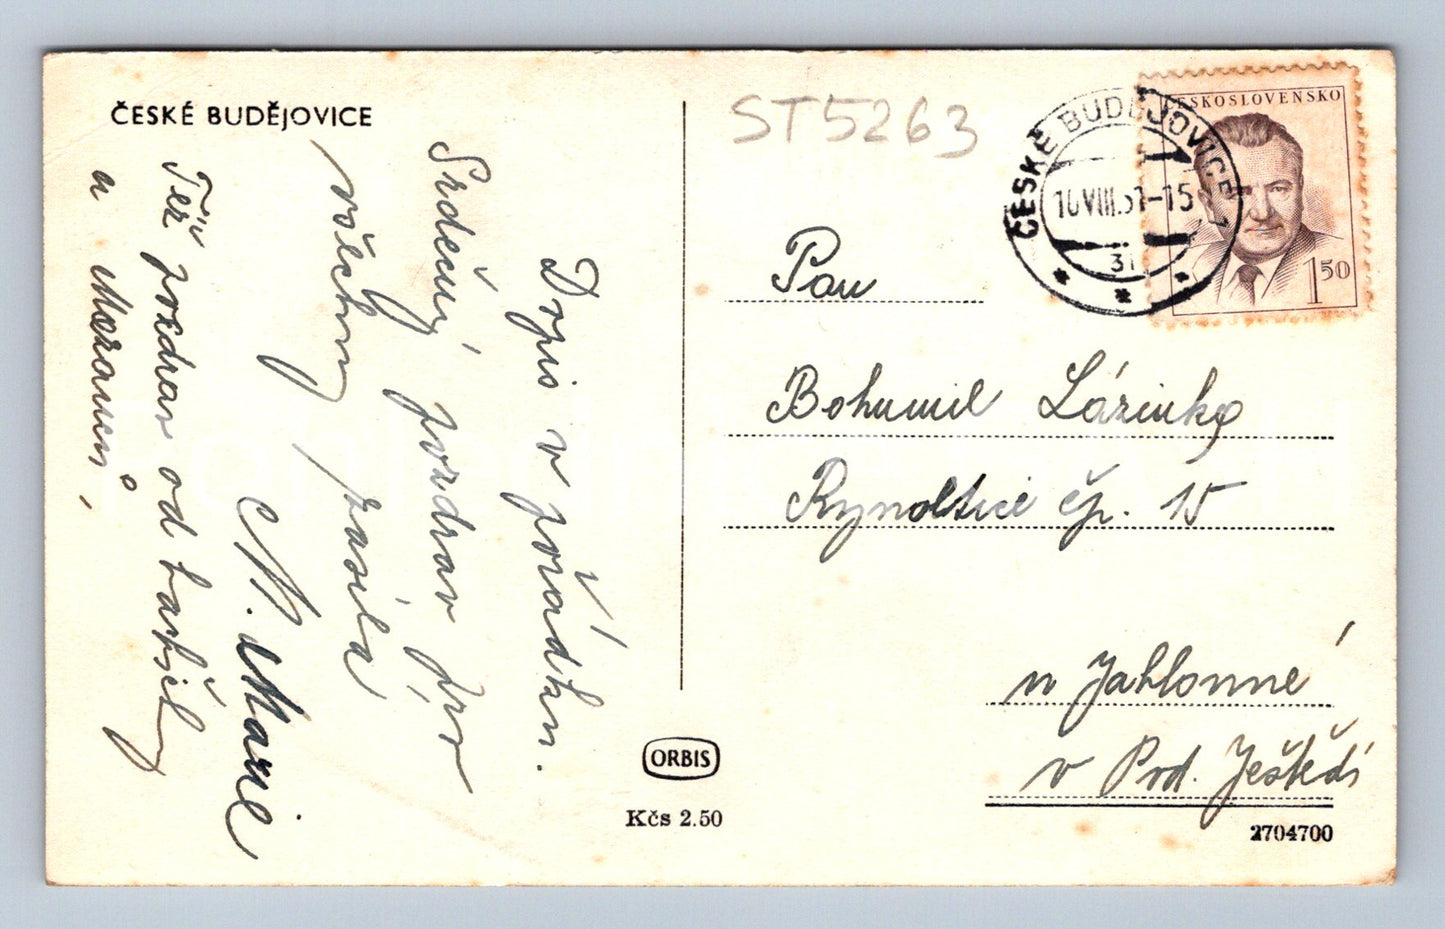 ČESKÉ BUDĚJOVICE
Dopis v pořádku.
Srdečný pozdrav pro
všechny zasílá
N. Marie
Též pozdrav od
a
ST5263
ČESKOSLOVENSKO
1 50
ČESKÉ BUDĚJOVICE 1
10 VIII.51-15
31
Pan
Bohumil Lázinka
Rynoltice čp. 15
u Jablonné
v Pod. Ještědí
ORBIS
Kčs 2.50
2704700